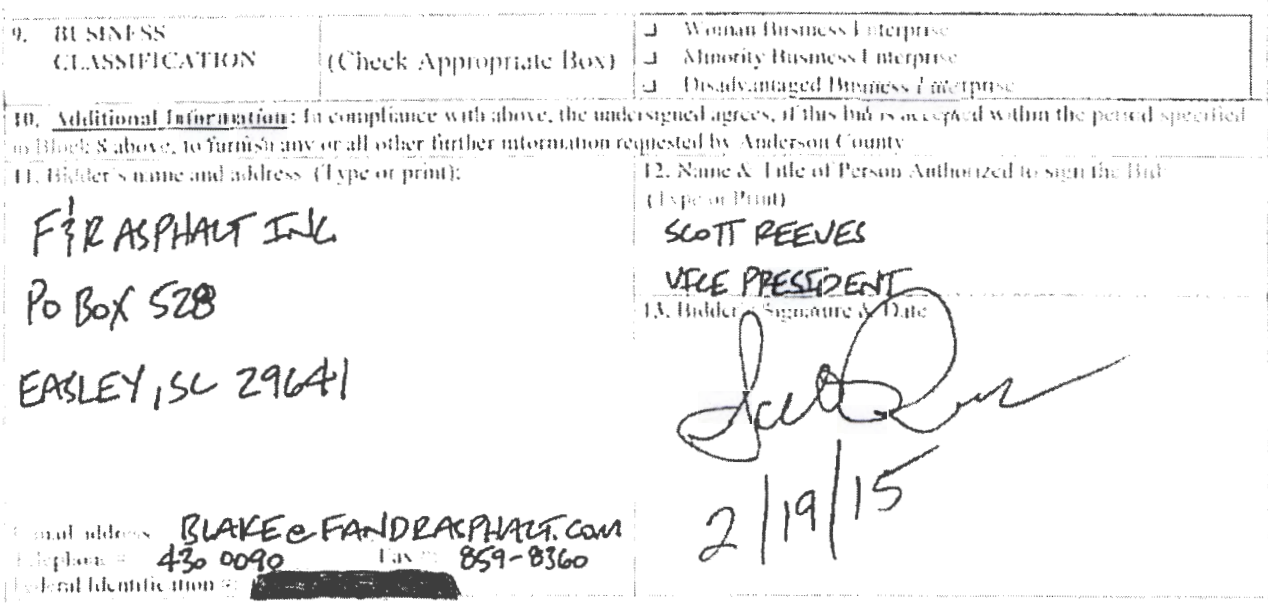 9. BUSINESS
CLASSIFICATION
(Check Appropriate Box)
Woman Business Enterprise
Minority Business Enterprise
Disadvantaged Business Enterprise
10. Additional Information: In compliance with above, the undersigned agrees, if this bid is accepted within the period specified
in Block 8 above, to furnish any or all other further information requested by Anderson County
11. Bidder's name and address (Type or print):
F & R ASPHALT INC.
PO BOX 528
EASLEY, SC 29641
E-mail address BLAKE@FANDRASPHALT.COM
Telephone # 430 0090 Fax #: 859-8360
Federal Identification #:
12. Name & Title of Person Authorized to sign the Bid:
(Type or Print)
SCOTT REEVES
VICE PRESIDENT
13. Bidder's Signature & Date
2/19/15